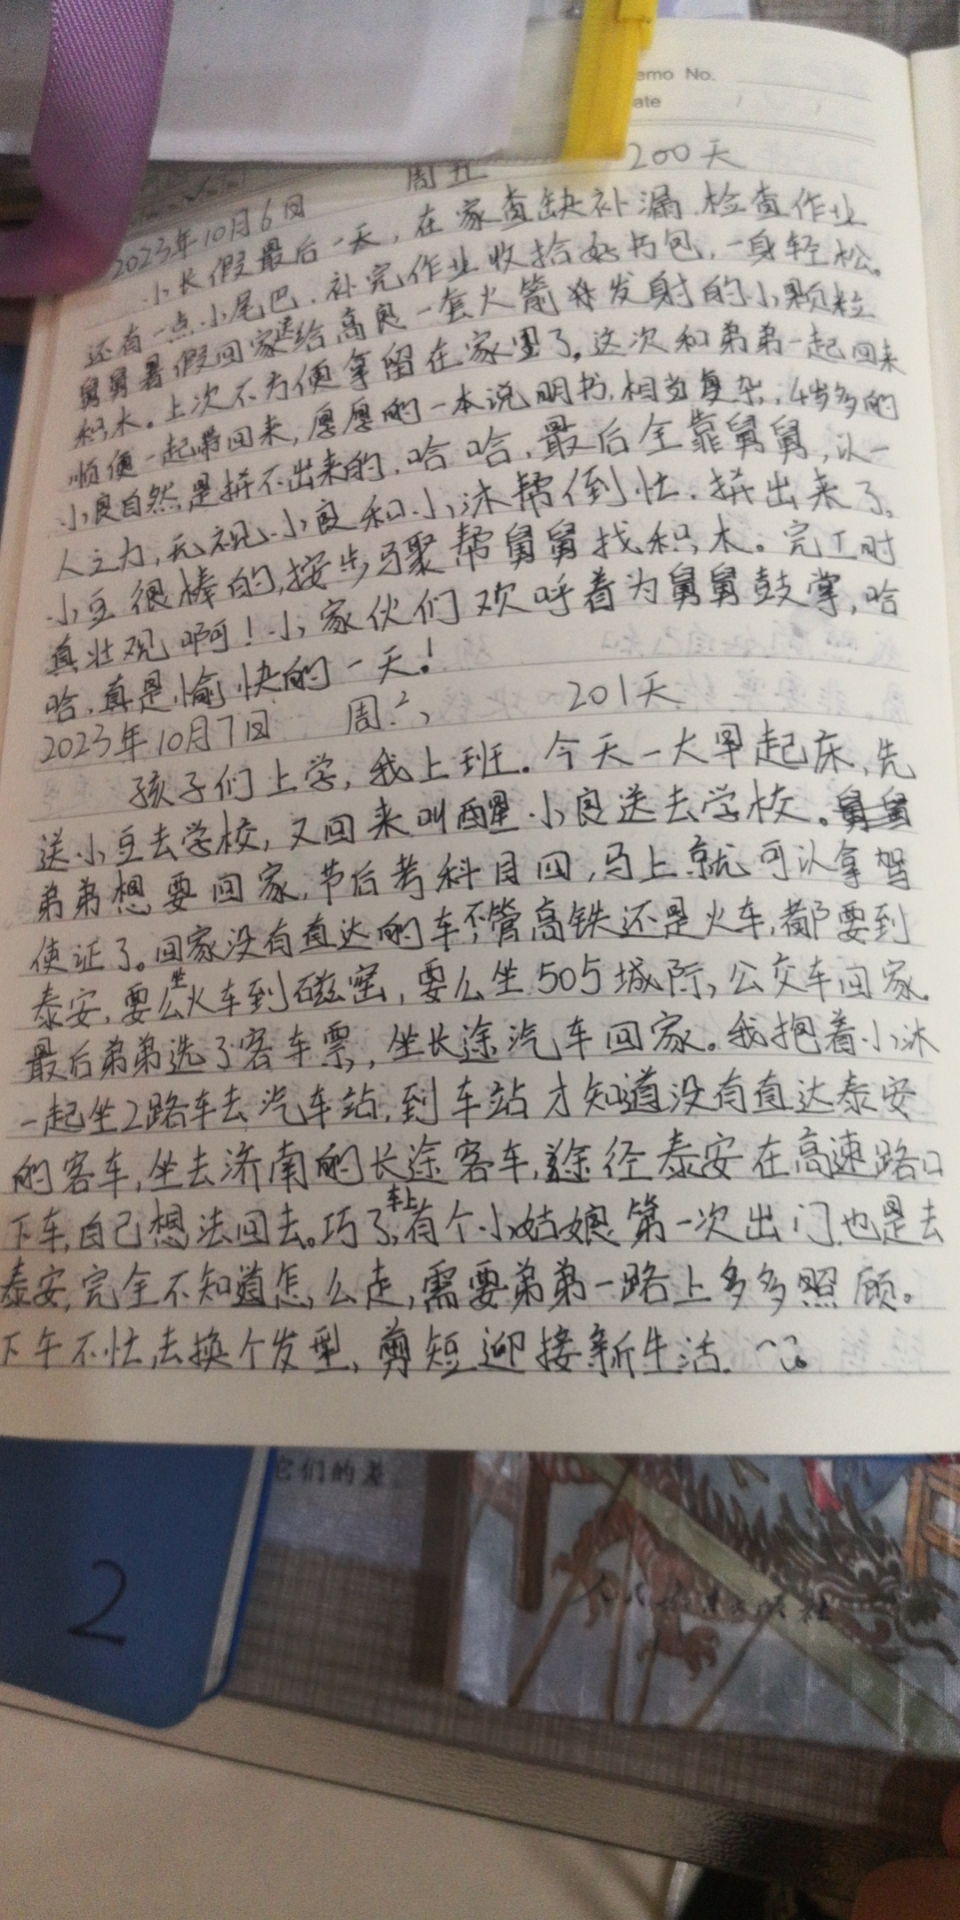 emo No.
ate
2023年10月6日 周五 200天
小长假最后一天,在家查缺补漏.检查作业
还有一点小尾巴.补完作业收拾好书包,一身轻松。
舅舅暑假回家送给高良一套火箭发射的小颗粒
积木。上次不方便拿留在家里了,这次和弟弟一起回来
顺便一起带回来,厚厚的一本说明书,相当复杂,4岁多的
小良自然是拼不出来的.哈哈,最后全靠舅舅,以一
人之力,无视小良和小沐帮倒忙.拼出来了,
小豆很棒的,按步马聚帮舅舅找积木。完工时
真壮观啊!小家伙们欢呼着为舅舅鼓掌,哈
哈,真是愉快的一天!
2023年10月7日 周 201天
孩子们上学,我上班。今天一大早起床,先
送小豆去学校,又回来叫醒小良送去学校。舅舅
弟弟想要回家,节后考科目四,马上就可以拿驾
使证了。回家没有直达的车,不管高铁还是火车,都要到
泰安,要么坐火车到磁窑,要么坐505城际,公交车回家.
最后弟弟选了客车票,坐长途汽车回家。我抱着小沐
一起坐2路车去汽车站,到车站才知道没有直达泰安
的客车,坐去济南的长途客车,途径泰安在高速路口
下车,自己想法回去。巧了,车上有个小姑娘第一次出门.也是去
泰安,完全不知道怎么走,需要弟弟一路上多多照顾。
下午不忙,去换个发型,剪短迎接新生活.
它们的差
2